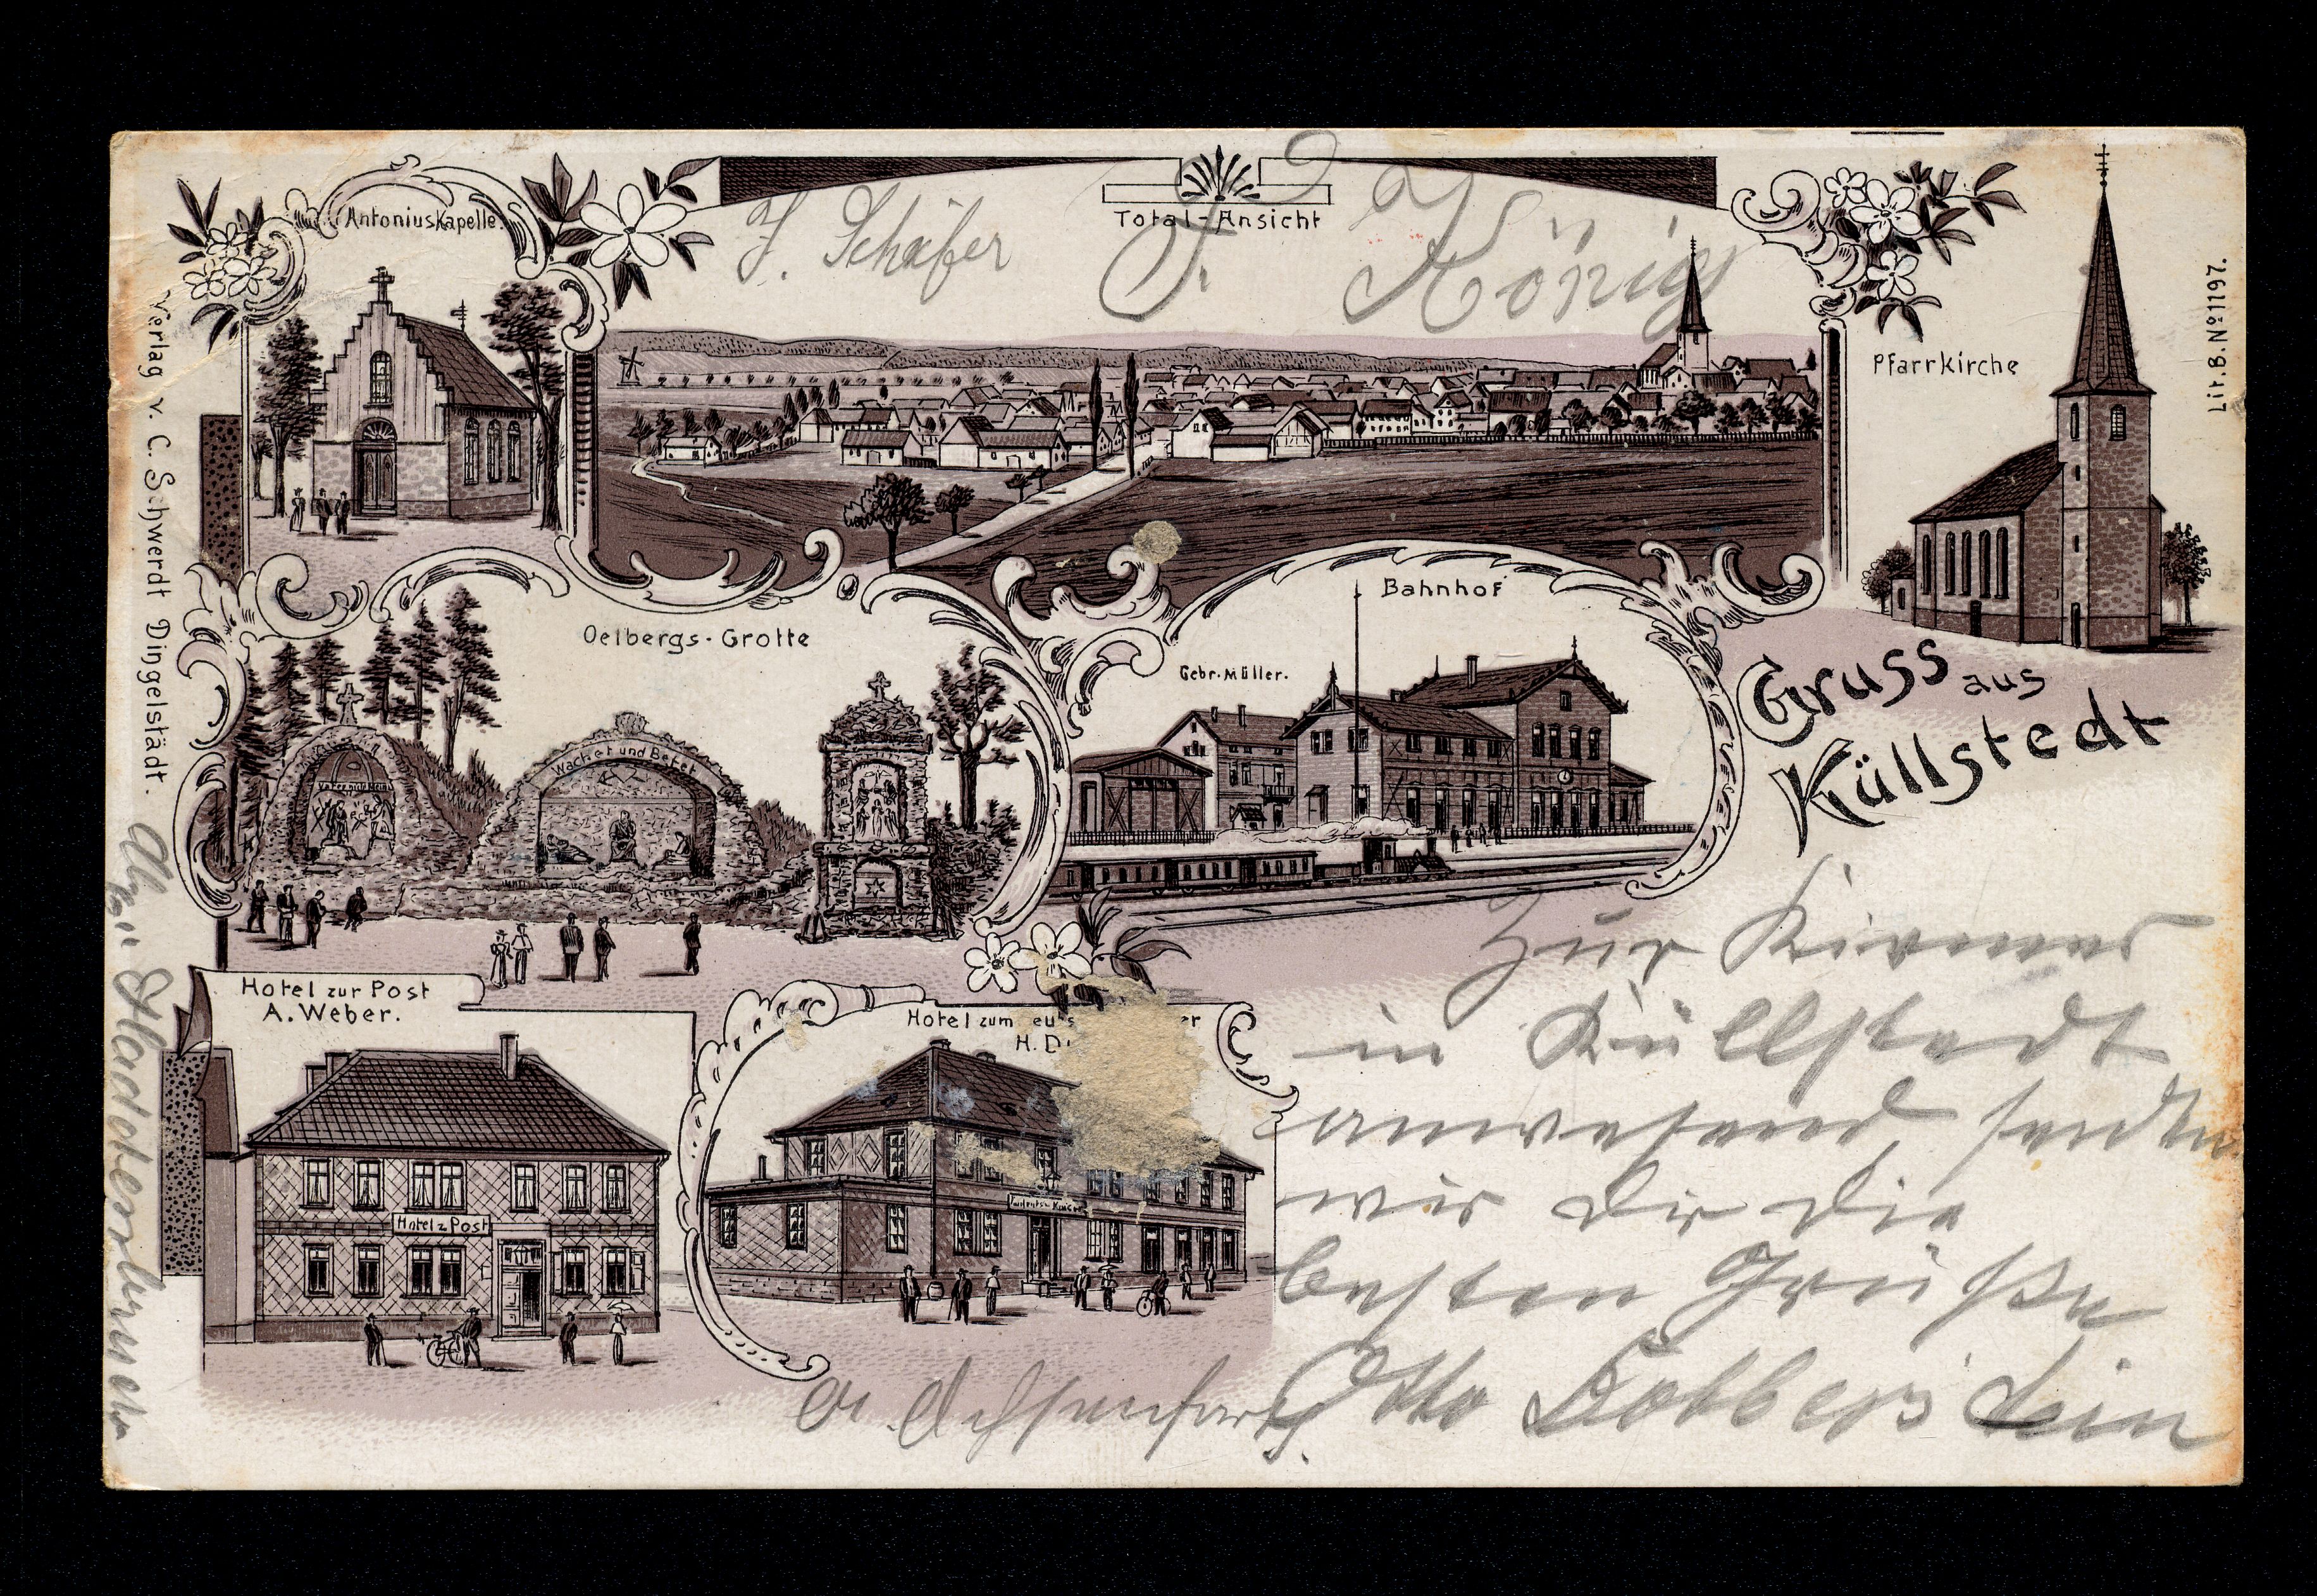 Antoniuskapelle.
Total-Ansicht
J. Schäfer
F. König
Pfarrkirche
Lit. B. No 1197.
Verlag v. C. Schwerdt Dingelstädt.
Oelbergs-Grotte
Wachet und Betet
Bahnhof
Gebr. Müller.
Gruss aus
Küllstedt
Hotel zur Post
A. Weber.
Hotel z Post
Hotel zum
H.
Zur Kirmes
in Küllstedt
anwesend, senden
wir Dir die
besten Grüße
Otto